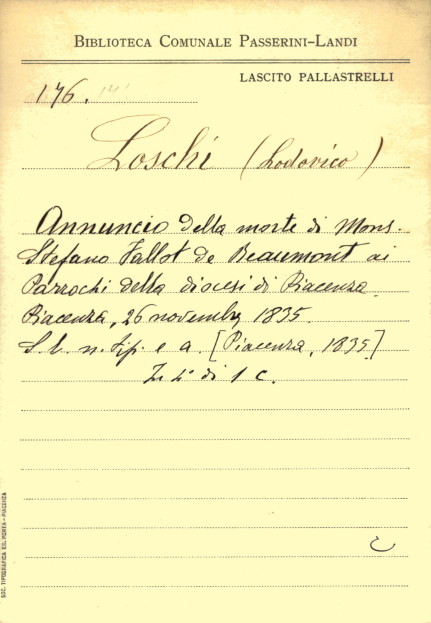 BIBLIOTECA COMUNALE PASSERINI-LANDI
LASCITO PALLASTRELLI
176.
Loschi (Lodovico)
Annuncio della morte di Mons.
Stefano Fallot de Beaumont ai
Parrochi della diocesi di Piacenza.
Piacenza, 26 novembre 1835.
S. l. n. tip. e a. [Piacenza, 1835]
In 4° di 1 c.
SOC. TIPOGRAFICA ED. PORTA - PIACENZA